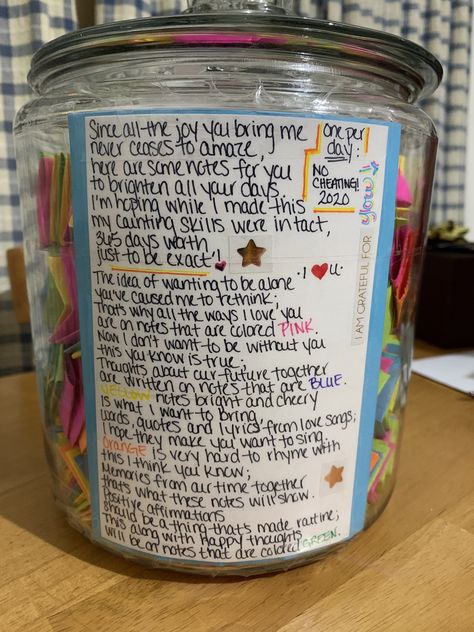 Since all the joy you bring me
never ceases to amaze,
here are some notes for you
to brighten all your days.
I'm hoping while I made this
my counting skills were in tact,
365 days worth,
just to be exact!
one per
day:
NO
CHEATING!
2020
I AM GRATEFUL FOR
you!
I ♥ U.
The idea of wanting to be alone
you've caused me to rethink;
That's why all the ways I love you
are on notes that are colored PINK.
Now I don't want to be without you
this you know is true.
Thoughts about our future together
are written on notes that are BLUE.
YELLOW notes bright and cheery
is what I want to bring,
Words, quotes and lyrics from love songs;
I hope they make you want to sing.
ORANGE is very hard to rhyme with
this I think you know;
Memories from our time together
that's what these notes will show.
Positive affirmations
should be a thing that's made routine;
This along with Happy thoughts
will be on notes that are colored GREEN.